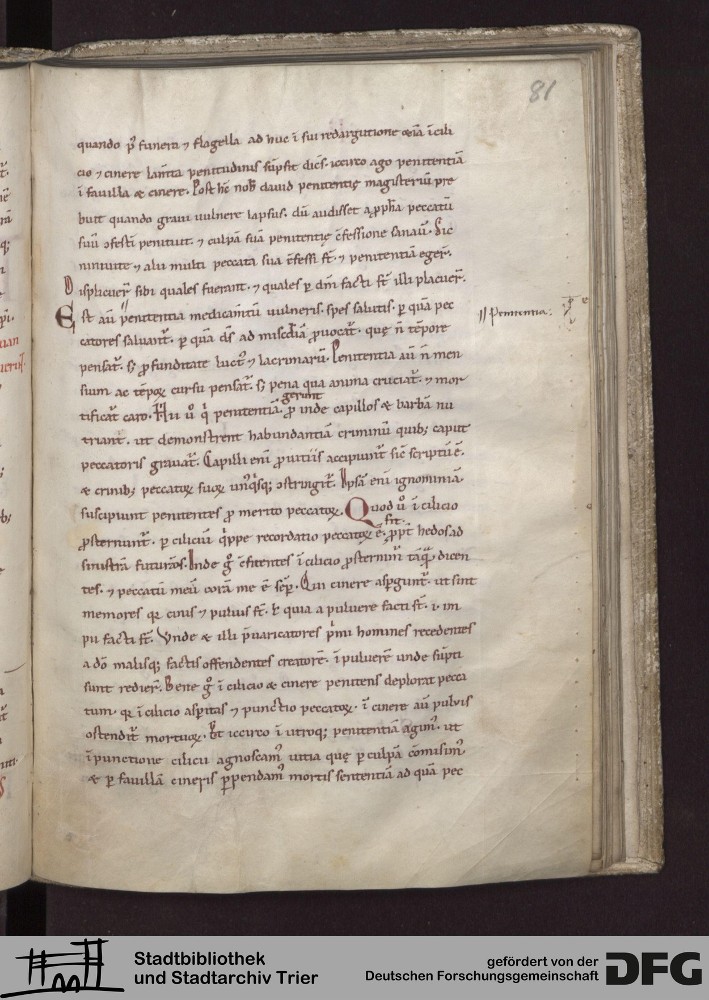 81
quando p̄ funera ⁊ flagella ad huc ī sui redargutione &iā ī cili
cio ⁊ cinere lam̄ta penitudinis sūpsit dicēs. iccirco ago penitentiā
ī fauilla & cinere. Post hęc nob̄ dauid penitentię magisteriū pre
buit quando graui uulnere lapsus. dū audisset a p̄pha peccatū
suū ꝯfesti penituit. ⁊ culpā suā penitentię ꝯfessione sanauit. Sic
niniuite ⁊ alii multi peccata sua ꝯfessi st̄. ⁊ penitentiā eger̄.
Displicuer̄ sibi quales fuerant. ⁊ quales p̱ dm̄ facti st̄ illi placuer̄.
Est aū penitentia medicam̄tū uulneris. spes salutis. p̱ quā pec
catores saluant̄. p̱ quā ds̄ ad misc̄diā ꝓuocat̄. quę n̄ tēpore
pensat̄. s; ꝓfunditate luct᷒ ⁊ lacrimarū. Penitentia aū n̄ men
sium ac tēpoꝝ cursu pensat̄. s; pena qua anima cruciat̄. ⁊ mor
tificat̄ caro. Hii ů q̇ penitentiā gerunt ꝓ inde capillos & barbā nu
triant. ut demonstrent habundantiā criminū quib; caput
peccatoris grauat̄. Capilli enī ꝓ uitiis accipiunt̄ sic̄ scriptū ē.
& crinib; peccatoꝝ suoꝝ un᷒q̇sq; ꝯstringit̄. Ipsā enī ignominiā
suscipiunt penitentes ꝓ merito peccatoꝝ. Quod ů ī cilicio
ꝓsternunt̄. p̱ ciliciū q̇ppe recordatio peccatoꝝ ē. fit ꝓpt̄ hedos ad
sinistrā futuros. Inde g̊ ꝯfitentes ī cilicio ꝓsternim᷒ tāquā dicen
tes. ⁊ peccatū meū corā me ē sēp̱. Qui cinere asp̱gunt̄. ut sint
memores qđ cinis ⁊ puluis st̄. ł quia a puluere facti st̄. i. im
pii facti st̄. Vnde & illi p̄uaricatores ṗmi homines recedentes
a dō malisq; factis offendentes creatorē. ī puluerē unde sūpti
sunt redier̄. Bene g̊ ī cilicio & cinere penitens deplorat pecca
tum. qđ ī cilicio asp̱itas ⁊ punctio peccatoꝝ. ī cinere aū puluis
ostendit̄ mortuoꝝ. Et iccirco ī utroq; penitentiā agim᷒. ut
ī punctione cilicii agnoscam᷒ uitia quę p̱ culpā cōmisim᷒.
& p̱ fauillā cineris p̱pendam᷒ mortis sententiā ad quā pec
// Penitentia.
Stadtbibliothek
und Stadtarchiv Trier
gefördert von der
Deutschen Forschungsgemeinschaft
DFG